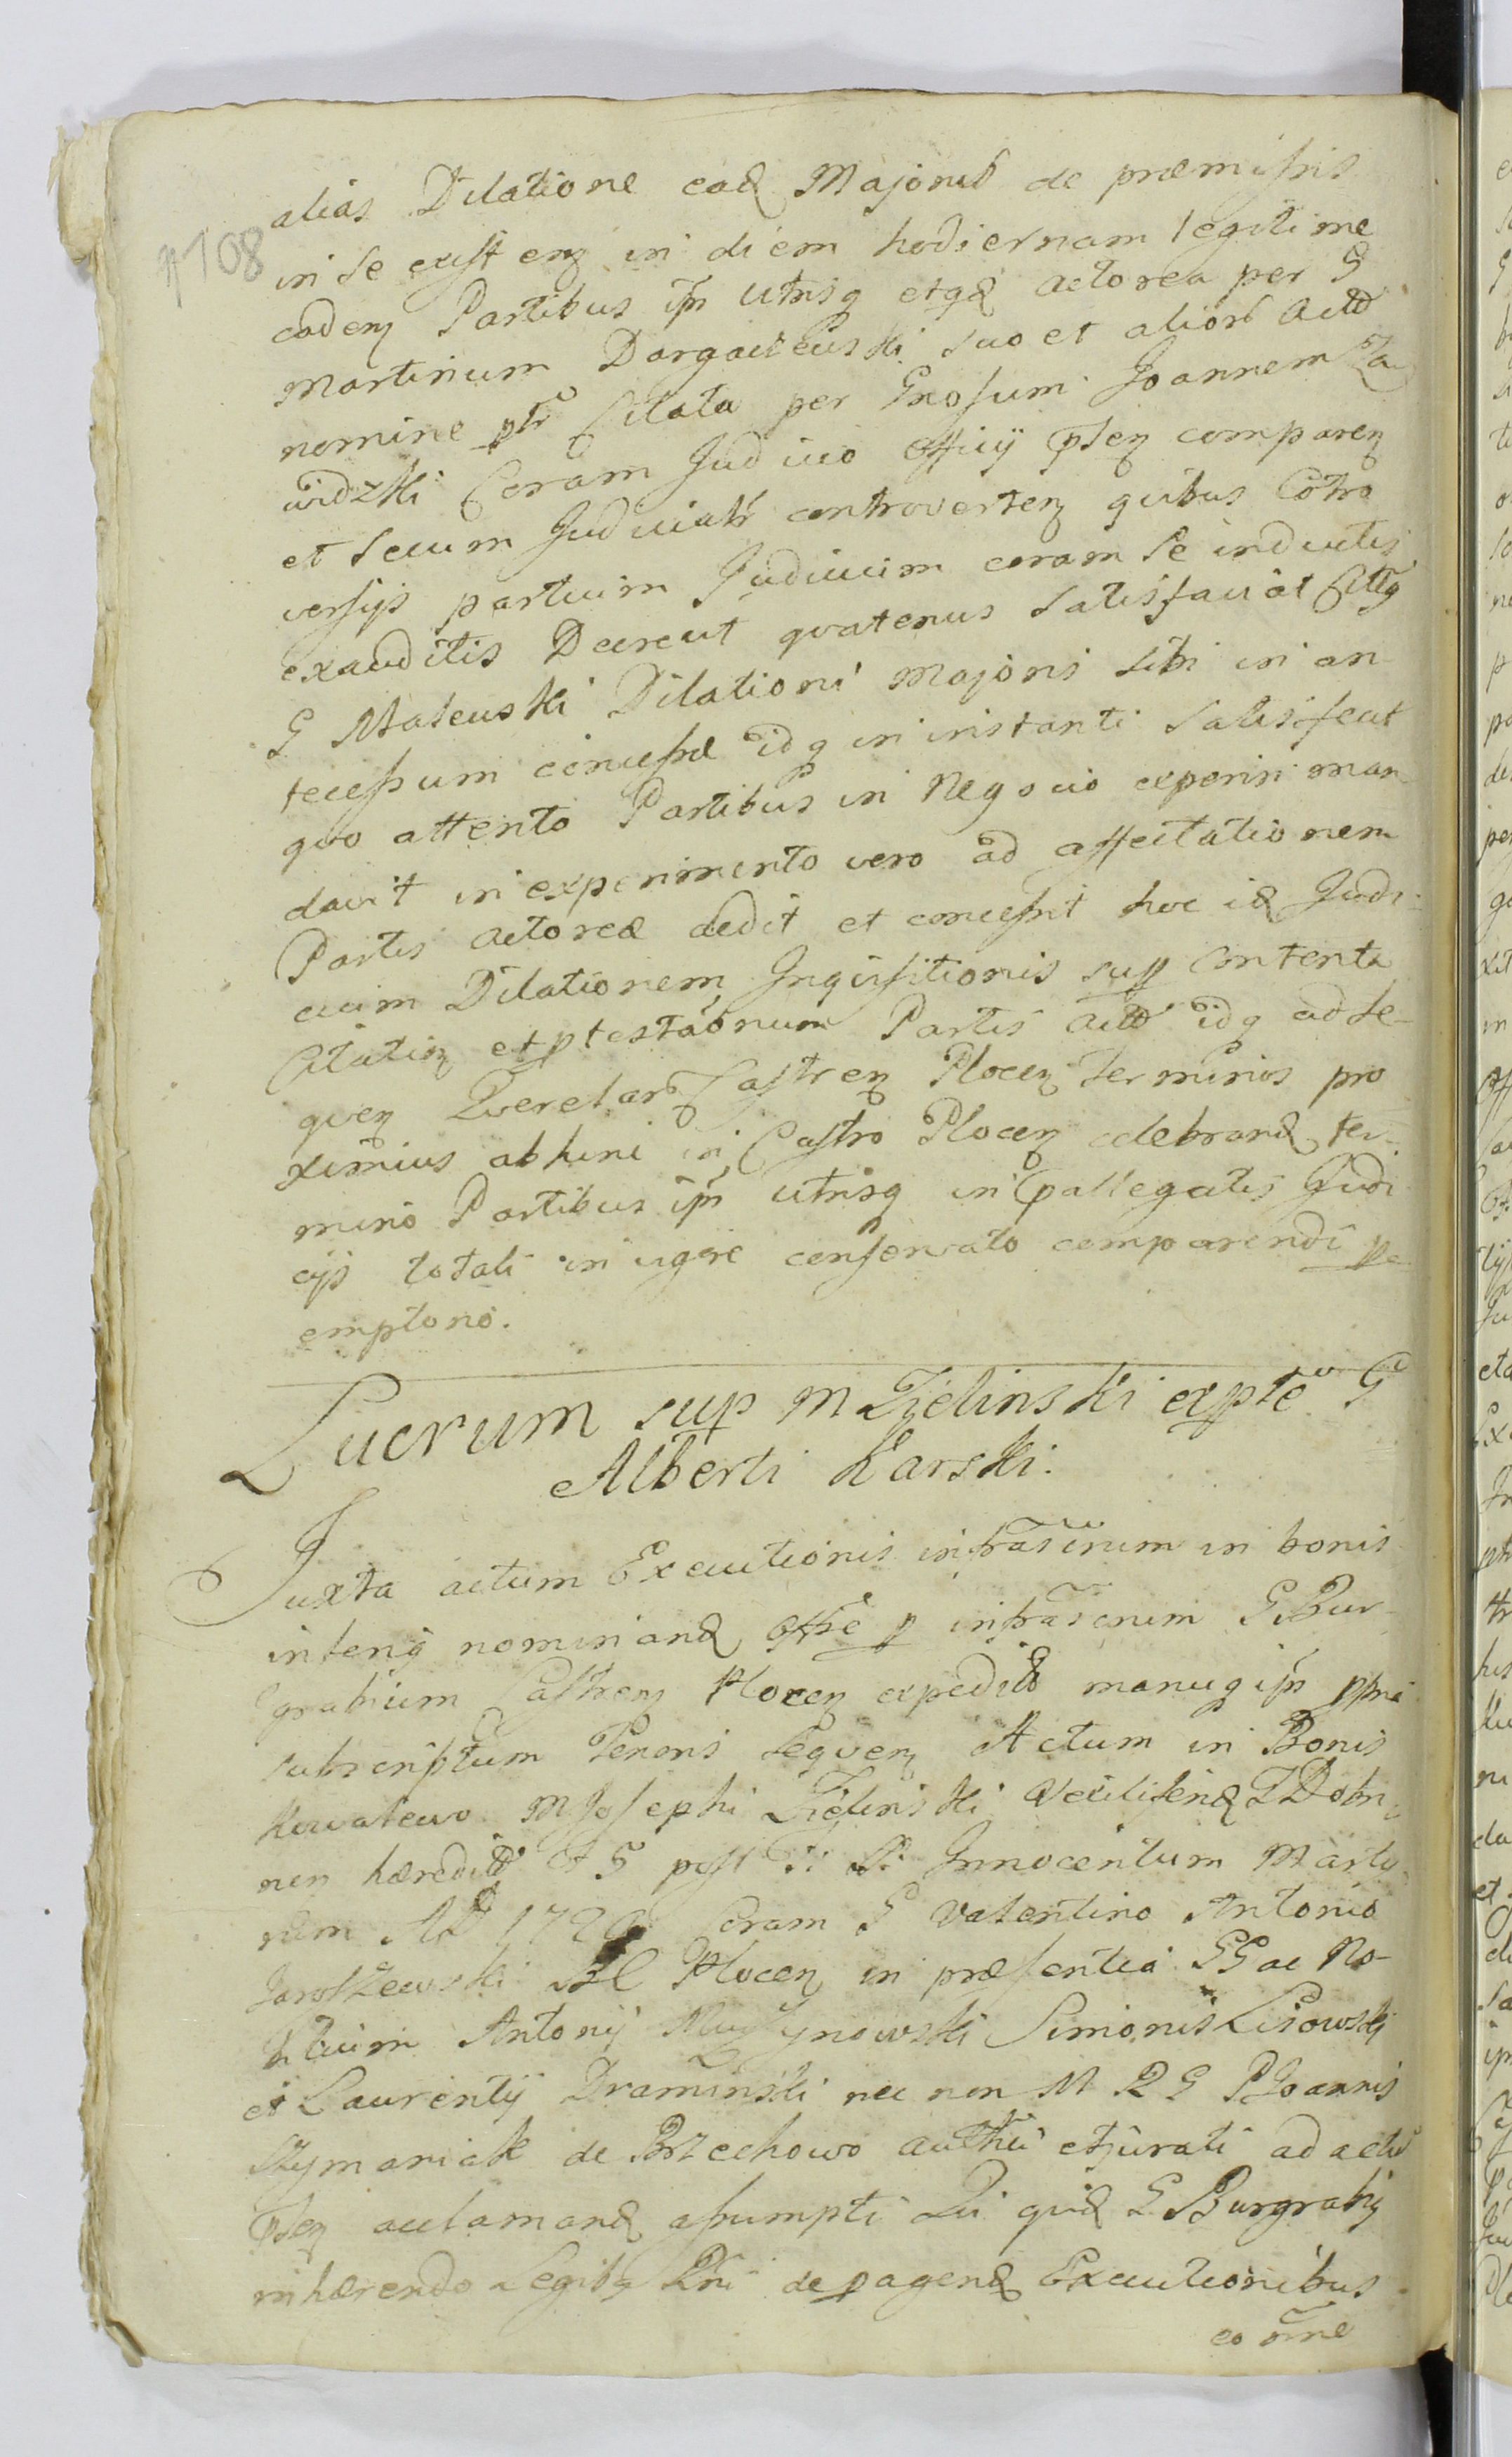 108
alias Dilatione ead Majoris de præmissis
in se existen in diem hodiernam legitime
caden Partibus ipn Utrisq etqd actorea per G
Martinum suo et alior Act
nomine ptr Citata per Gnosum Joannem Za
widzki Coram Judicio officij pten comparen
et secum Judicialr controverten quibus Cotro
versijs partium Judicium coram se inductis
exauditis Decrevit quatenus satisfaciat
G Mateuski Dilationi Majoris sibi in an
tecessum concessæ idq in instanti satisfecit
quo attento Partibus in Negocio experiri man
davit in experimento vero ad affectationem
Partis actoreæ dedit et concessit hoc id Judi
cium Dilationem Inquisitionis sup contenta
Citation et ptestaonum Partis Act idq ad se
quen Querelar Castren Plocen Terminos pro
ximius abhinc in Castro Plocen celebrand ter
mino Partibus ipn utrisq in pallegatis Judi
cijs totali in vigore conservato comparendi pe
emptorio.
Lucrum sup M Zielinski expte G
Alberti Karski.
Juxta actum Executionis infrascrium in bonis
inferiq nominand offe p infrascrium G Bur
grabium Castren Plocen expedit manuq ipn ppria
subscriptum Tenoris sequen Actum in Bonis
Kowalewo M Josephi Zielinski Vexiliferid T Dobri
nen hæredit F 5 post F: S: Innocentum Marty
rum AD 172 Coram G Valentino Antonio
Jaroszewski BC Plocen in præsentia GG ac No
bilium Antonij Simonis Lisowski
et Laurentij Draminski nec non M R G P Joannis
Szymaniak de Brzechowo authti et jurati ad actu
pten acclamand assumpti Qui quid G Burgrabiq
inhærendo Legibq Rni de pagend Executionibus
eo nne